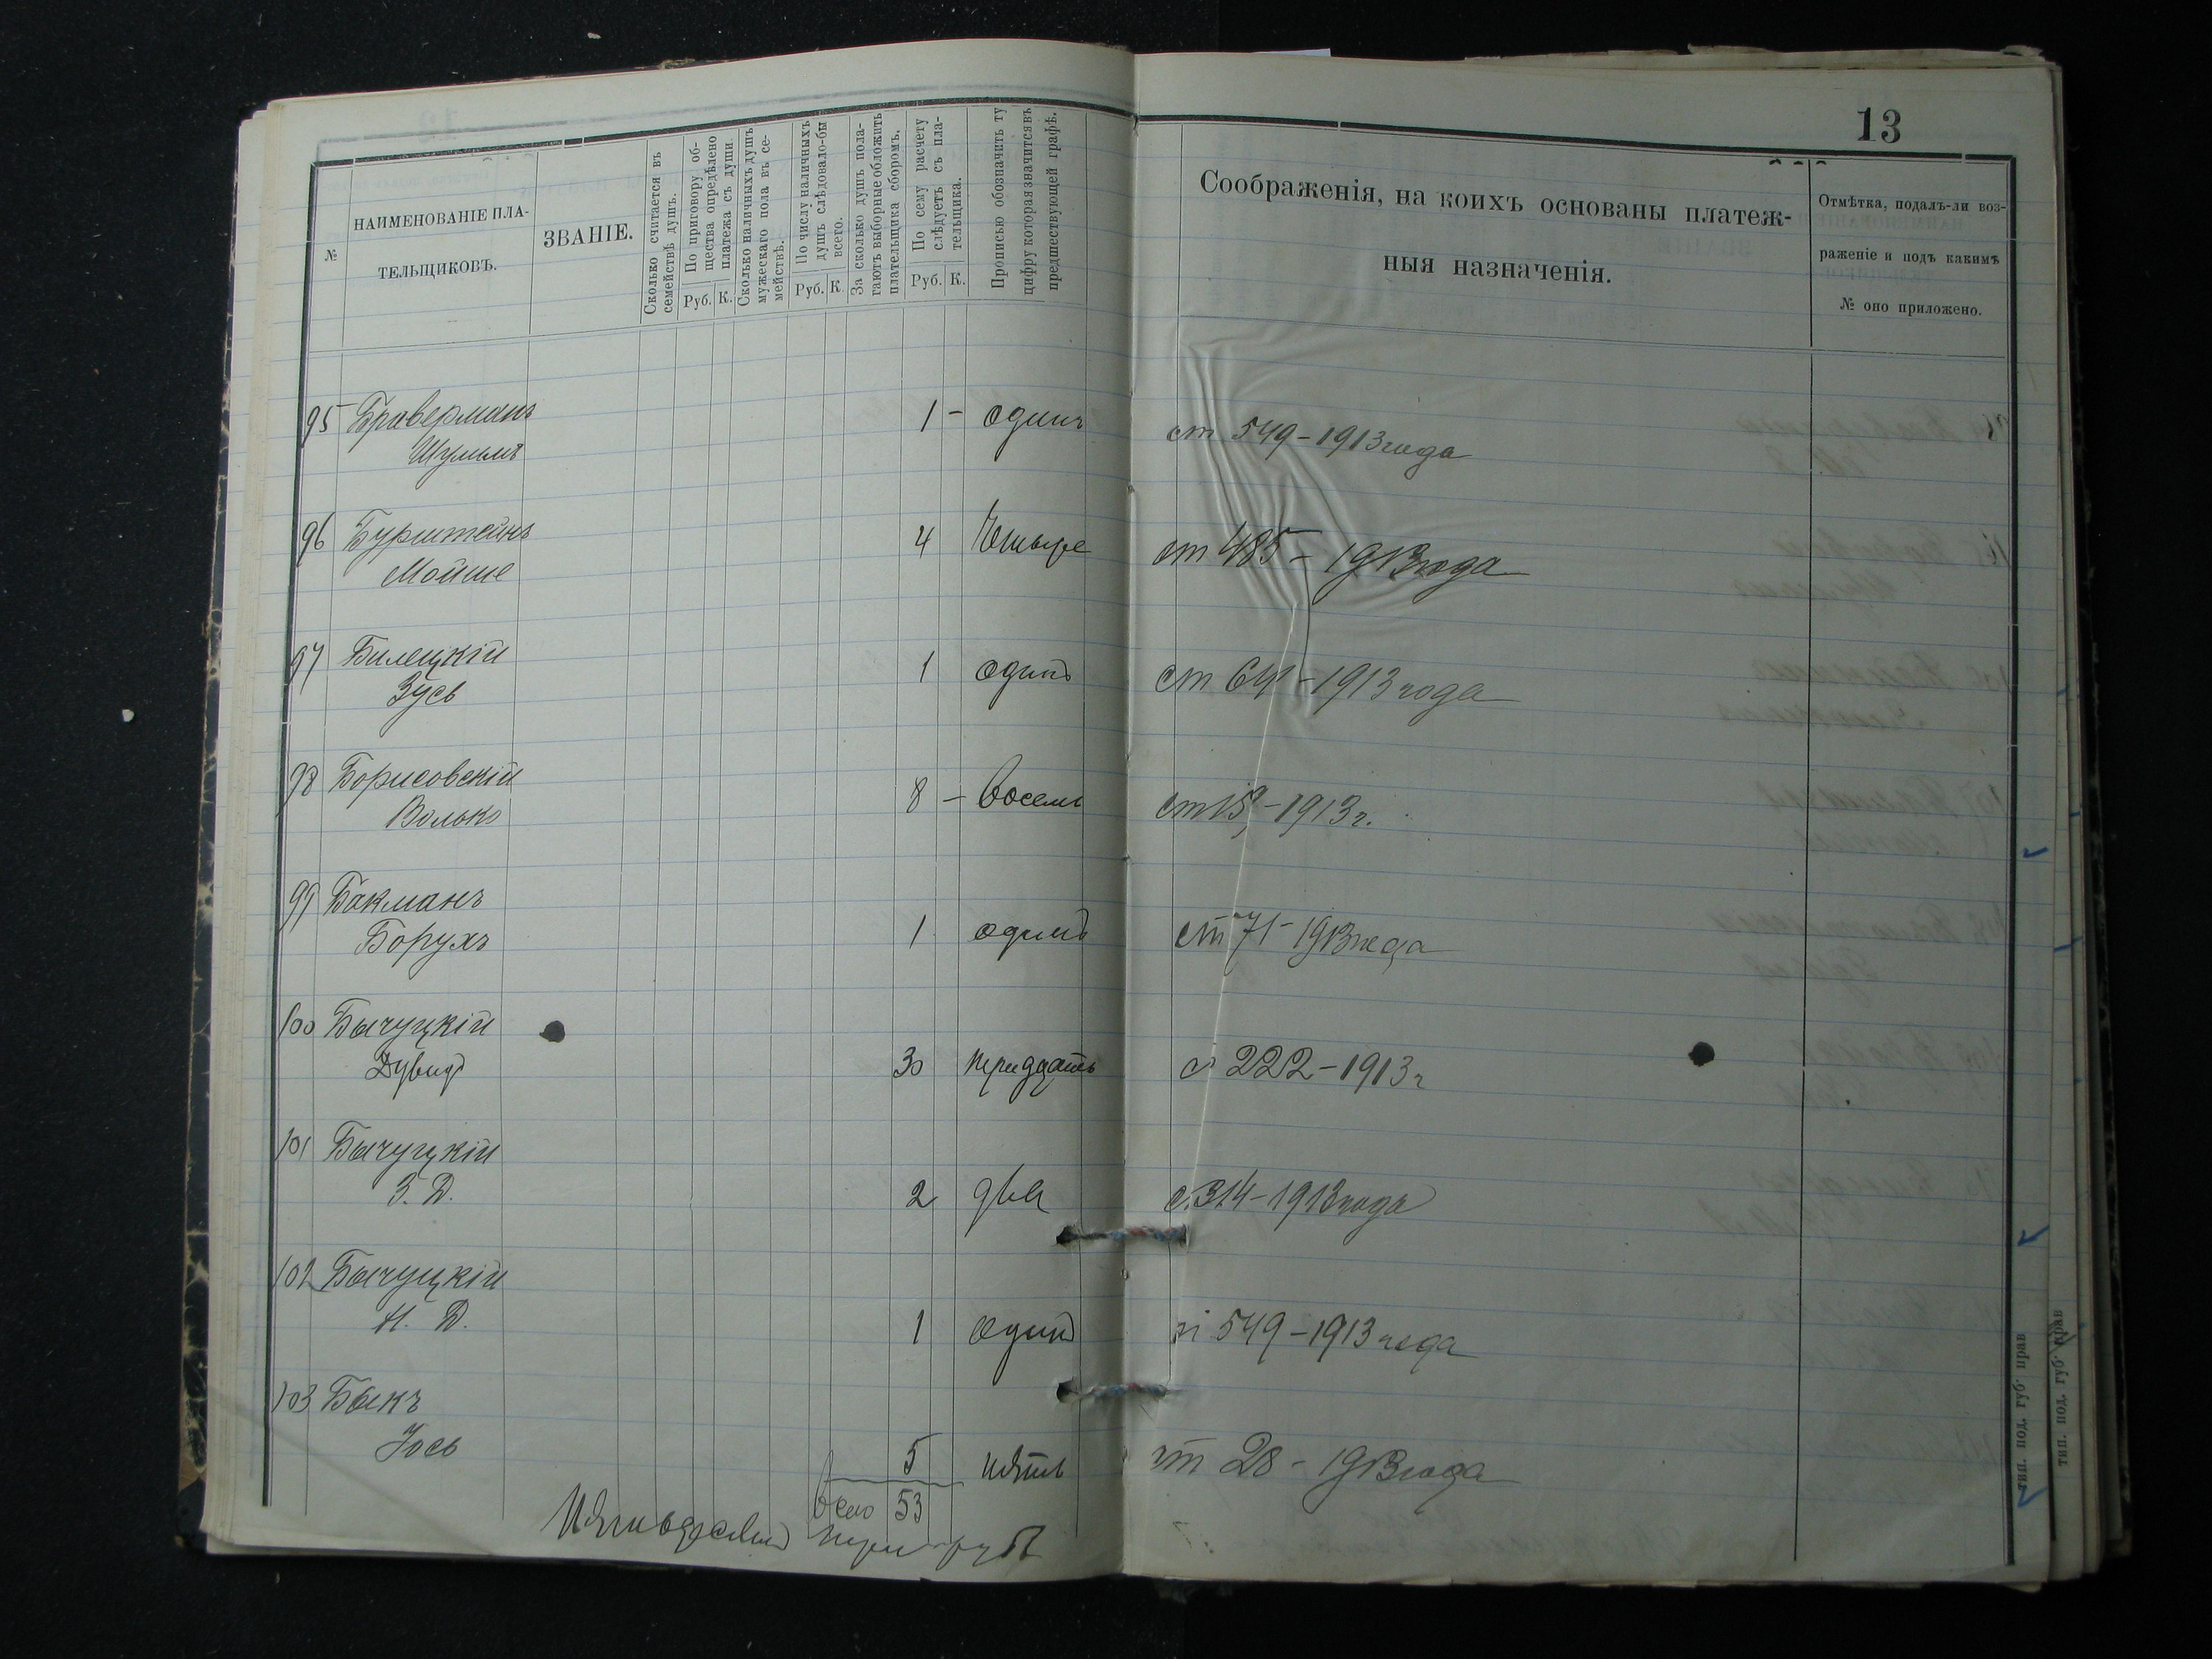 13
№
НАИМЕНОВАНІЕ ПЛА-
ТЕЛЬЩИКОВЪ.
ЗВАНІЕ.
Сколько считается въ
семействѣ душъ.
По приговору об-
щества опредѣлено
платежа съ души.
Руб. К.
Сколько наличныхъ душъ
мужескаго пола въ се-
мействѣ.
По числу наличныхъ
душъ слѣдовало-бы
всего.
Руб. К.
За сколько душъ пола-
гаютъ выборные обложить
плательщика сборомъ.
По сему расчету
слѣдуетъ съ пла-
тельщика.
Руб. К.
Прописью обозначить ту
цифру которая значится въ
предшествующей графѣ.
Соображенія, на коихъ основаны платеж-
ныя назначенія.
Отмѣтка, подалъ-ли воз-
раженіе и подъ какимъ
№ оно приложено.
95 Браверманъ 1 - одинъ ст 549 - 1913 года
Шулимъ
96 Бурштейнъ 4 Четыре ст 485 - 1913 года
Мойше
97 Билецкій 1 одинъ ст 641 - 1913 года
Зусь
98 Борисовскій 8 - восемь ст - 1913 г.
Волько
99 Бакманъ 1 одинъ ст 71 - 1913 года
Борухъ
100 Бычуцкій
Дувидъ 30 тридцать с 222 - 1913 г
101 Бычуцкій
З. Д. 2 два с. 314 - 1913 года
102 Бычуцкій
Н. Д. 1 один 549 - 1913 года
103 Быкъ
Іось 5 пять ст 28 - 1913 года
всего 53
Пятьдесятъ три руб
тип. под. губ. прав
тип. под. губ. прав